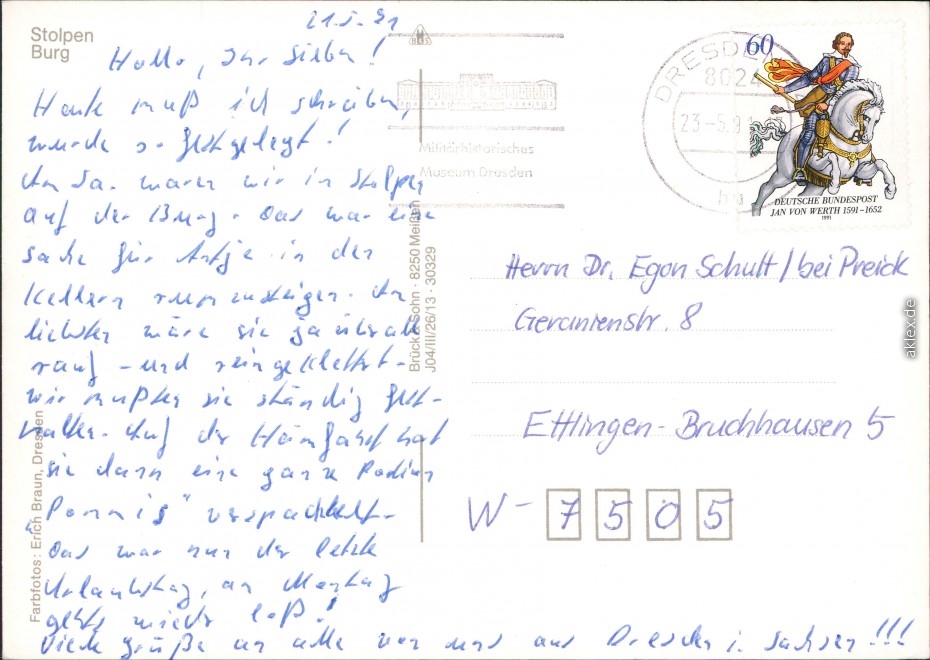 Stolpen
Burg
21.5.91
Hallo, Ihr Lieben!
Heute muß ich schreiben,
wurde so festgelegt!
Am Sa. waren wir in Stolpen
auf der Burg. Das war eine
Sache für Antje in den
Kellern rumzusteigen. Am
liebsten wäre sie ja überall
rauf - und reingeklettert -
wir mußten sie ständig fest-
halten. Auf der Heimfahrt hat
sie dann eine ganze Portion
„Pommis" verspachtelt -
Das war nun der letzte
Urlaubstag, am Montag
gehts wieder loß!
Viele Grüße an alle von uns aus Dresden i. Sachsen!!!
Farbfotos: Erich Braun, Dresden
Brück & Sohn · 8250 Meißen
J04/III/26/13 · 30329
Militärhistorisches
Museum Dresden
DRESDEN
802
23-5.91
60
DEUTSCHE BUNDESPOST
JAN VON WERTH 1591-1652
1991
Herrn Dr. Egon Schutt / bei Preick
Geranienstr. 8
Ettlingen-Bruchhausen 5
W- 7505
aklex.de